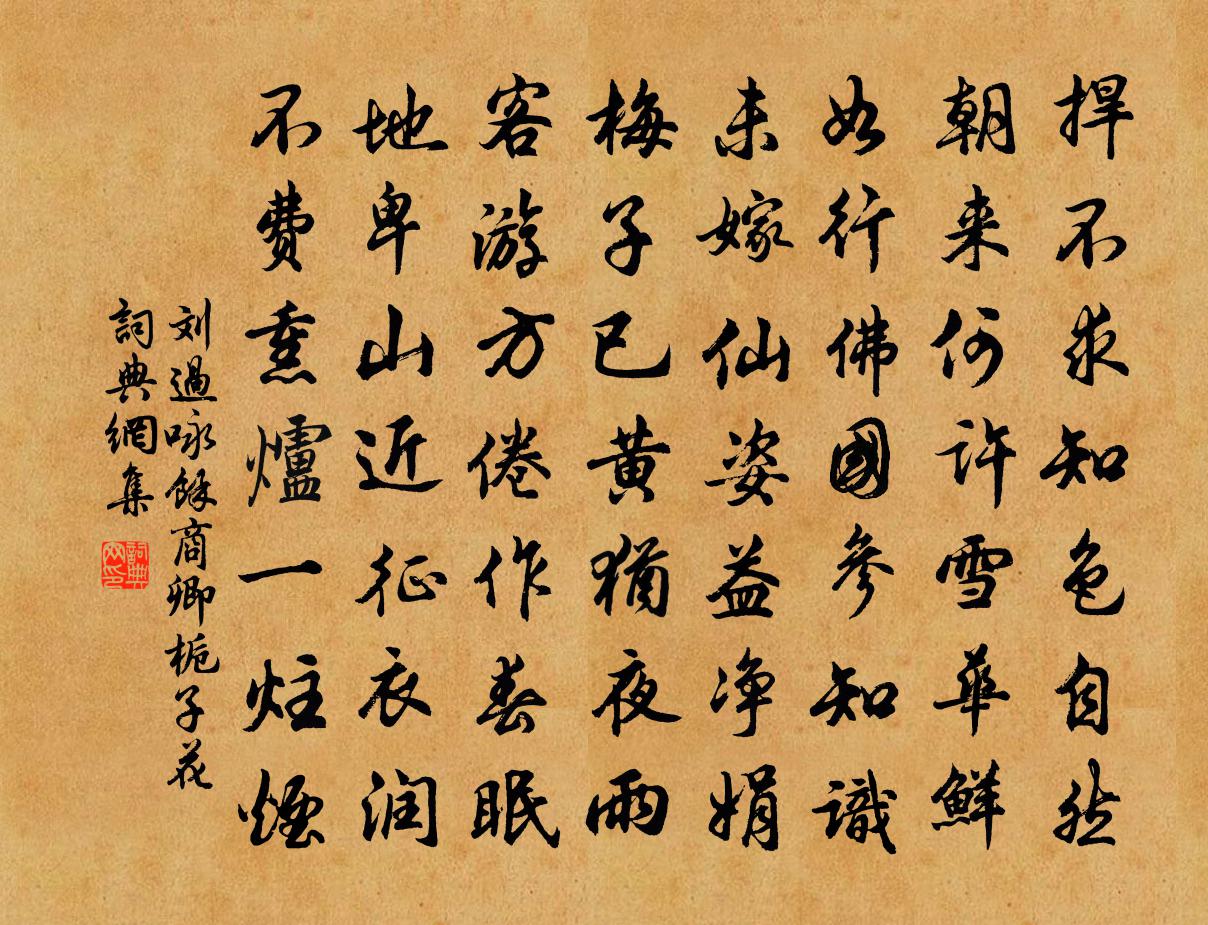 捍不求知色自然
朝来何许雪華鮮
如行佛國參知識
未嫁仙姿益净娟
梅子已黄猶夜雨
客游方倦作春眠
地卑山近征衣润
不费熏爐一炷煙
刘過咏餘商卿栀子花
詞典網集
詞典网印